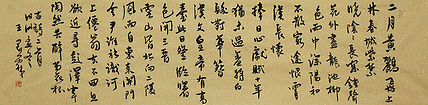 二月黄鸝飛上
林春城紫禁
曉陰陰長樂鐘聲
花外盡龍池柳
色雨中深陽和
不散窮途恨霄
漢長懷
捧日心獻賦十年
猶未遇羞將白
髮對華簪
漢文皇帝有高
臺此日登臨曙
色開三晉
雲山皆北向二陵
風雨自東來關門
令尹誰能識河
上僊翁去不回且
欲近尋彭澤宰
陶然共醉菊花杯